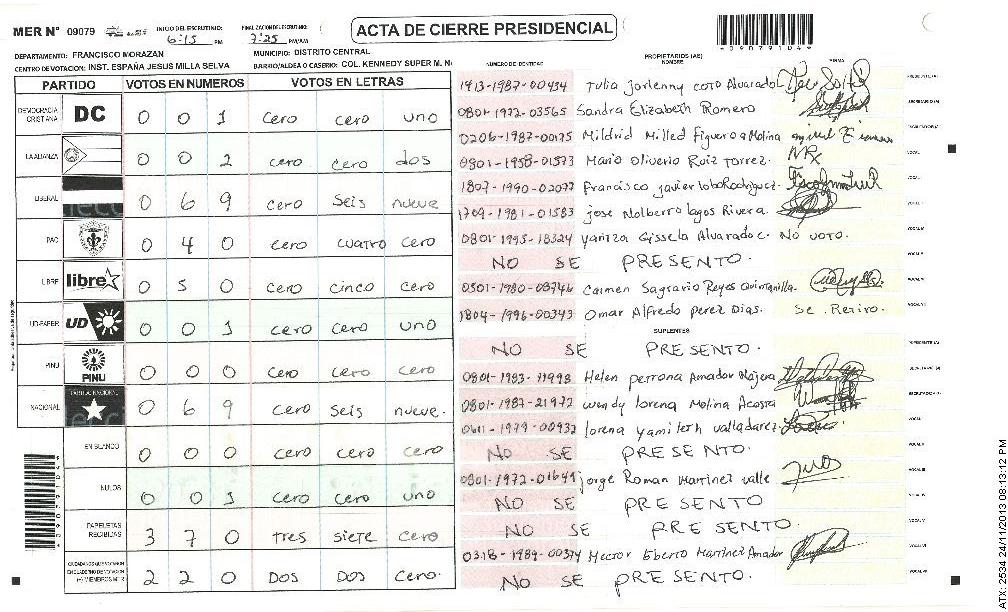 MER Nº 09079 INICIO DEL ESCRUTINIO: 6:15 PM FINALIZACION ESCRUTINIO: 7:25 PM/AM ACTA DE CIERRE PRESIDENCIAL
DEPARTAMENTO: FRANCISCO MORAZAN MUNICIPIO: DISTRITO CENTRAL
CENTRO DE VOTACION: INST. ESPAÑA JESUS MILLA SELVA BARRIO/ALDEA O CASERIO: COL. KENNEDY SUPER M. N
PARTIDO VOTOS EN NUMEROS VOTOS EN LETRAS
DEMOCRACIA CRISTIANA DC 0 0 1 cero cero uno
LA ALIANZA 0 0 2 cero cero dos
LIBERAL 0 6 9 cero seis nueve
PAC 0 4 0 cero cuatro cero
LIBRE libre 0 5 0 cero cinco cero
UD-FAPER UD 0 0 1 cero cero uno
PINU PINU 0 0 0 cero cero cero
NACIONAL 0 6 9 cero seis nueve.
EN BLANCO 0 0 0 cero cero cero
NULOS 0 0 1 cero cero uno
PAPELETAS RECIBIDAS 3 7 0 tres siete cero
2 2 0 DOS DOS cero.
NUMERO DE IDENTIDAD PROPIETARIOS (AS) NOMBRE FIRMA
1413-1987-00434 Tulia Jorlenny coto Alvarado
0801-1972-03565 Sandra Elizabeth Romero
0206-1987-00175 Mildrid Milled Figueroa Molina
0801-1958-01573 Mario Oliverio Ruiz Torrez.
1807-1990-02077 Francisco javier lobo Rodriguez.
1709-1981-01583 jose Nolberro lagos Rivera.
0801-1995-18324 yaritza Gissela Alvarado c. NO VOTO.
NO SE PRESENTO.
0501-1980-08746 Carmen Sagrario Reyes Quintanilla.
1804-1996-00343 Omar Alfredo perez Dias. Se Retiro.
SUPLENTES
NO SE PRESENTO.
0801-1983-11998 Helen perrona Amador Najera
0801-1987-21972 wendy lorena Molina Acosta
0611-1979-00932 lorena yamileth valladarez
NO SE PRESENTO.
0801-1972-01649 jorge Roman Martinez valle
NO SE PRESENTO
NO SE PRESENTO.
0318-1989-00374 Hector Eberto Martinez Amador
NO SE PRESENTO.
ATX: 2534 24/11/2013 08:13:12 PM